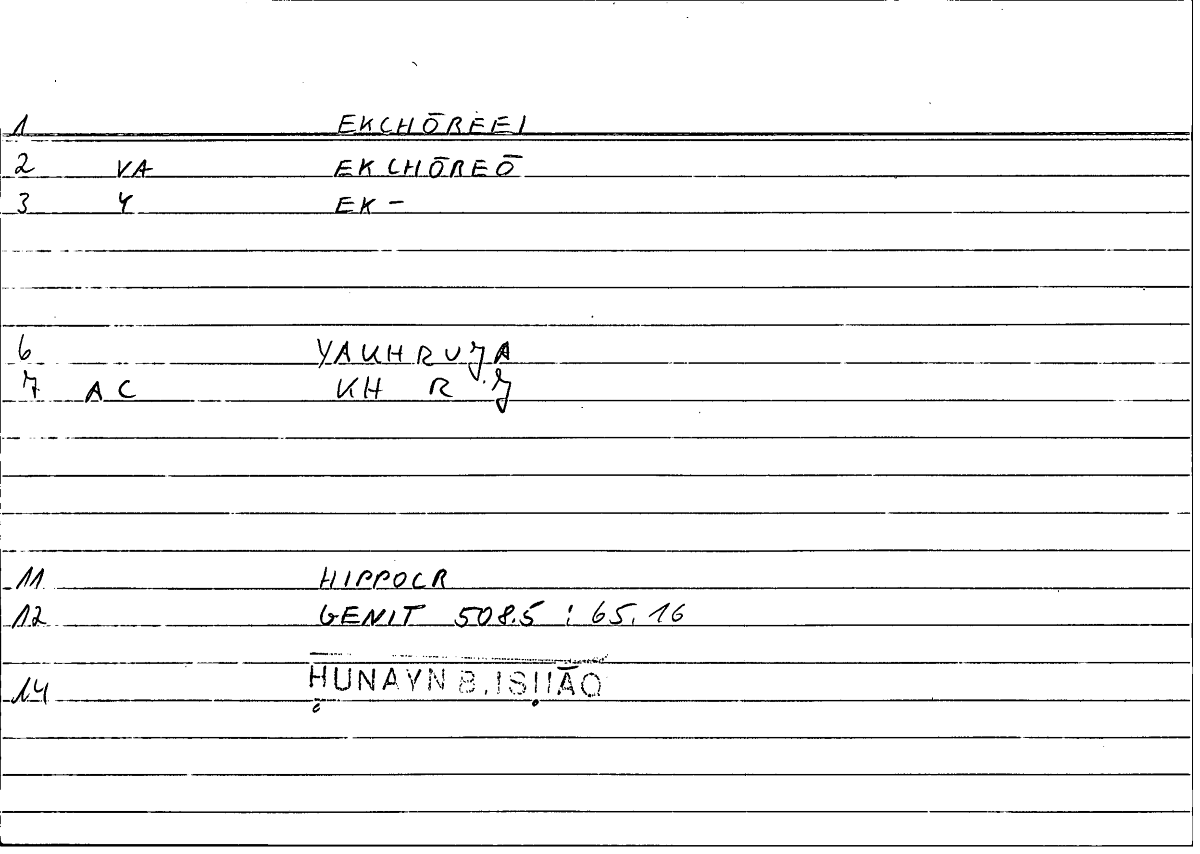 1 EKCHŌREEI
2 VA EKCHŌREŌ
3 Y EK-
6 YAKHRUJA
7 AC KH R J
11 HIPPOCR
12 GENIT 508.5 : 65.16
14 ḤUNAYN B. ISḤĀQ